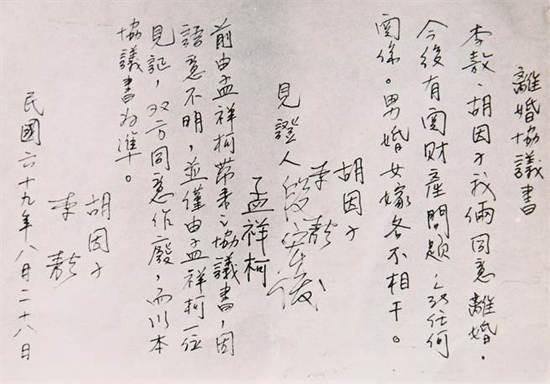 離婚協議書
李敖、胡因子我倆同意離婚，
今後有関財產問題，任何
関係。男婚女嫁各不相干。
胡因子
李敖
見證人 段宏俊
孟祥柯
前由孟祥柯帶來之協議書，因
語意不明，並僅由孟祥柯一位
見証，双方同意作廢，而以本
協議書为準。
胡因子
李敖
民國六十九年八月二十八日